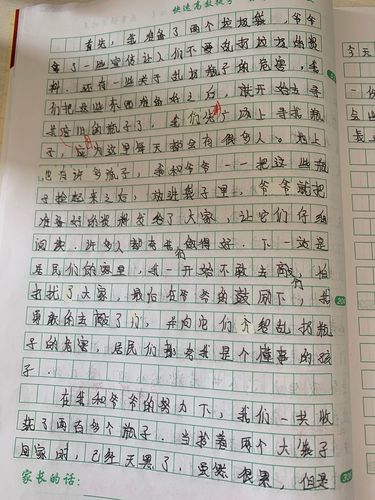 首先，我准备了两个垃圾袋，爷爷
拿了一些宣传让人们不要乱扔垃圾的资
料，还有一些关于乱扔瓶子的危害，我
们把这些东西准备好之后，就开始去寻
找这些的瓶子了，我们去广场上寻找瓶
子，因为这里每天都会有很多人。地上
也有许多瓶子，我和爷爷一一把这些瓶
子捡起来之后，放进袋子里，爷爷就把
准备好的资料发给了大家，让它们仔细
回家.许多人都夸我们做得好.下一站是
居民们的家里，我一开始不敢去敲门，怕
打扰了大家，最后在爷爷的鼓励下，我
勇敢的去敲了门，并向它们介绍乱扔瓶
子的危害，居民们都夸我是个懂事的孩
子.
在我和爷爷的努力下，我们一共收
获了两百多个瓶子.当拎着两个大袋子
回家时，已经天黑了，虽然很累，但是
家长的话：
今天